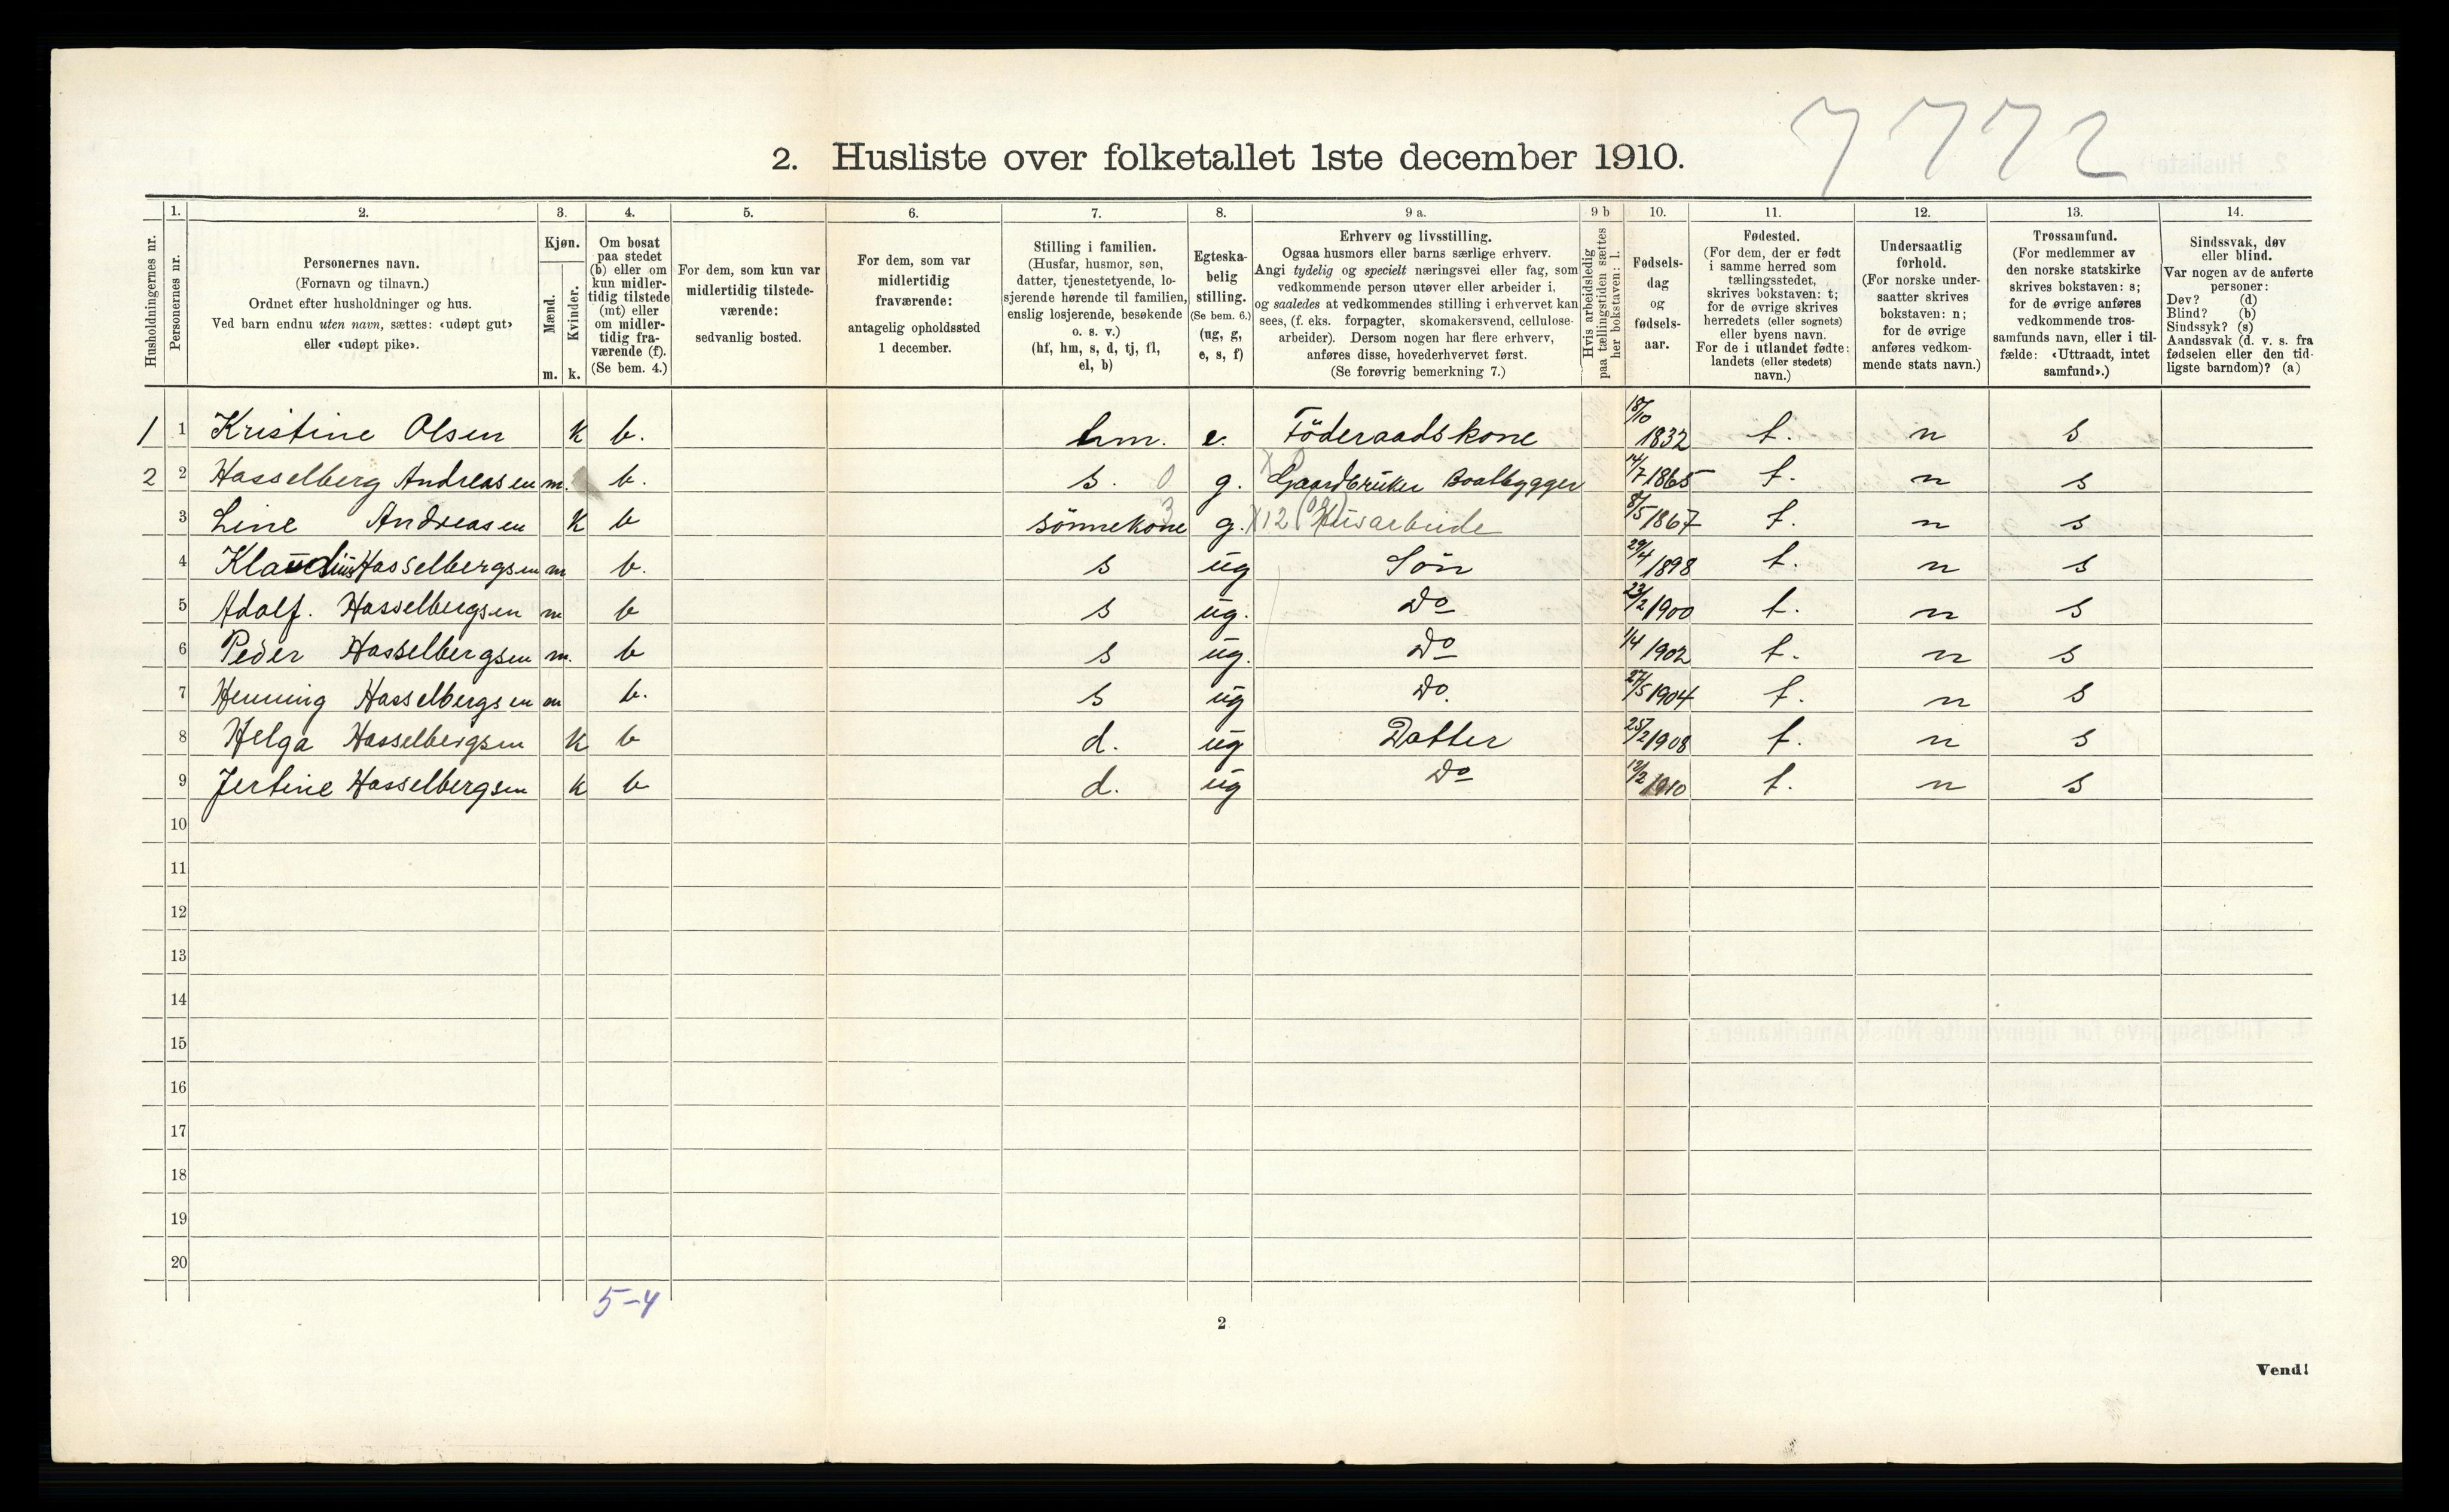 7772
2. Husliste over folketallet 1ste december 1910.
1. 2. 3. 4. 5. 6. 7. 8. 9 a. 9 b 10. 11. 12. 13. 14.
Husholdningernes nr.
Personernes nr.
Personernes navn.
(Fornavn og tilnavn.)
Ordnet efter husholdninger og hus.
Ved barn endnu uten navn, sættes: «udøpt gut»
eller «udøpt pike».
Kjøn.
Mænd.
Kvinder.
m. k.
Om bosat
paa stedet
(b) eller om
kun midler-
tidig tilstede
(mt) eller
om midler-
tidig fra-
værende (f).
(Se bem. 4.)
For dem, som kun var
midlertidig tilstede-
værende:
sedvanlig bosted.
For dem, som var
midlertidig
fraværende:
antagelig opholdssted
1 december.
Stilling i familien.
(Husfar, husmor, søn,
datter, tjenestetyende, lo-
sjerende hørende til familien,
enslig losjerende, besøkende
o. s. v.)
(hf, hm, s, d, tj, fl,
el, b)
Egteska-
belig
stilling.
(Se bem. 6.)
(ug, g,
e, s, f)
Erhverv og livsstilling.
Ogsaa husmors eller barns særlige erhverv.
Angi tydelig og specielt næringsvei eller fag, som
vedkommende person utøver eller arbeider i,
og saaledes at vedkommendes stilling i erhvervet kan
sees, (f. eks. forpagter, skomakersvend, cellulose-
arbeider). Dersom nogen har flere erhverv,
anføres disse, hovederhvervet først.
(Se forøvrig bemerkning 7.)
Hvis arbeidsledig
paa tællingstiden sættes
her bokstaven: l.
Fødsels-
dag
og
fødsels-
aar.
Fødested.
(For dem, der er født
i samme herred som
tællingsstedet,
skrives bokstaven: t;
for de øvrige skrives
herredets (eller sognets)
eller byens navn.
For de i utlandet fødte:
landets (eller stedets)
navn.)
Undersaatlig
forhold.
(For norske under-
saatter skrives
bokstaven: n;
for de øvrige
anføres vedkom-
mende stats navn.)
Trossamfund.
(For medlemmer av
den norske statskirke
skrives bokstaven: s;
for de øvrige anføres
vedkommende tros-
samfunds navn, eller i til-
fælde: «Uttraadt, intet
samfund».)
Sindssvak, døv
eller blind.
Var nogen av de anførte
personer:
Døv? (d)
Blind? (b)
Sindssyk? (s)
Aandssvak (d. v. s. fra
fødselen eller den tid-
ligste barndom)? (a)
1 1 Kristine Olsen K b. hm. e. Föderaadskone 18/10 1832 t. n s
2 2 Hasselberg Andreasen m. b. s. 0 g. Gaardbruker Baatbygger 14/7 1865 t. n s
3 Line Andreasen K b sönnekone 3 g. X12 (og) Husarbeide 8/5 1867 t. n s
4 Klaudius Hasselbergsen m b. s ug Sön 29/4 1898 t. n s
5 Adolf. Hasselbergsen m b s ug. Do 23/2 1900 t. n s
6 Peder Hasselbergsen m. b s ug. Do 1/4 1902 t. n s
7 Henning Hasselbergsen m b. s ug Do. 27/5 1904 t. n s
8 Helga Hasselbergsen K b d. ug Datter 25/2 1908 t. n s
9 Jertine Hasselbergsen K b d. ug Do 12/2 1910 t. n s
10
11
12
13
14
15
16
17
18
19
20
5-4
2
Vend!